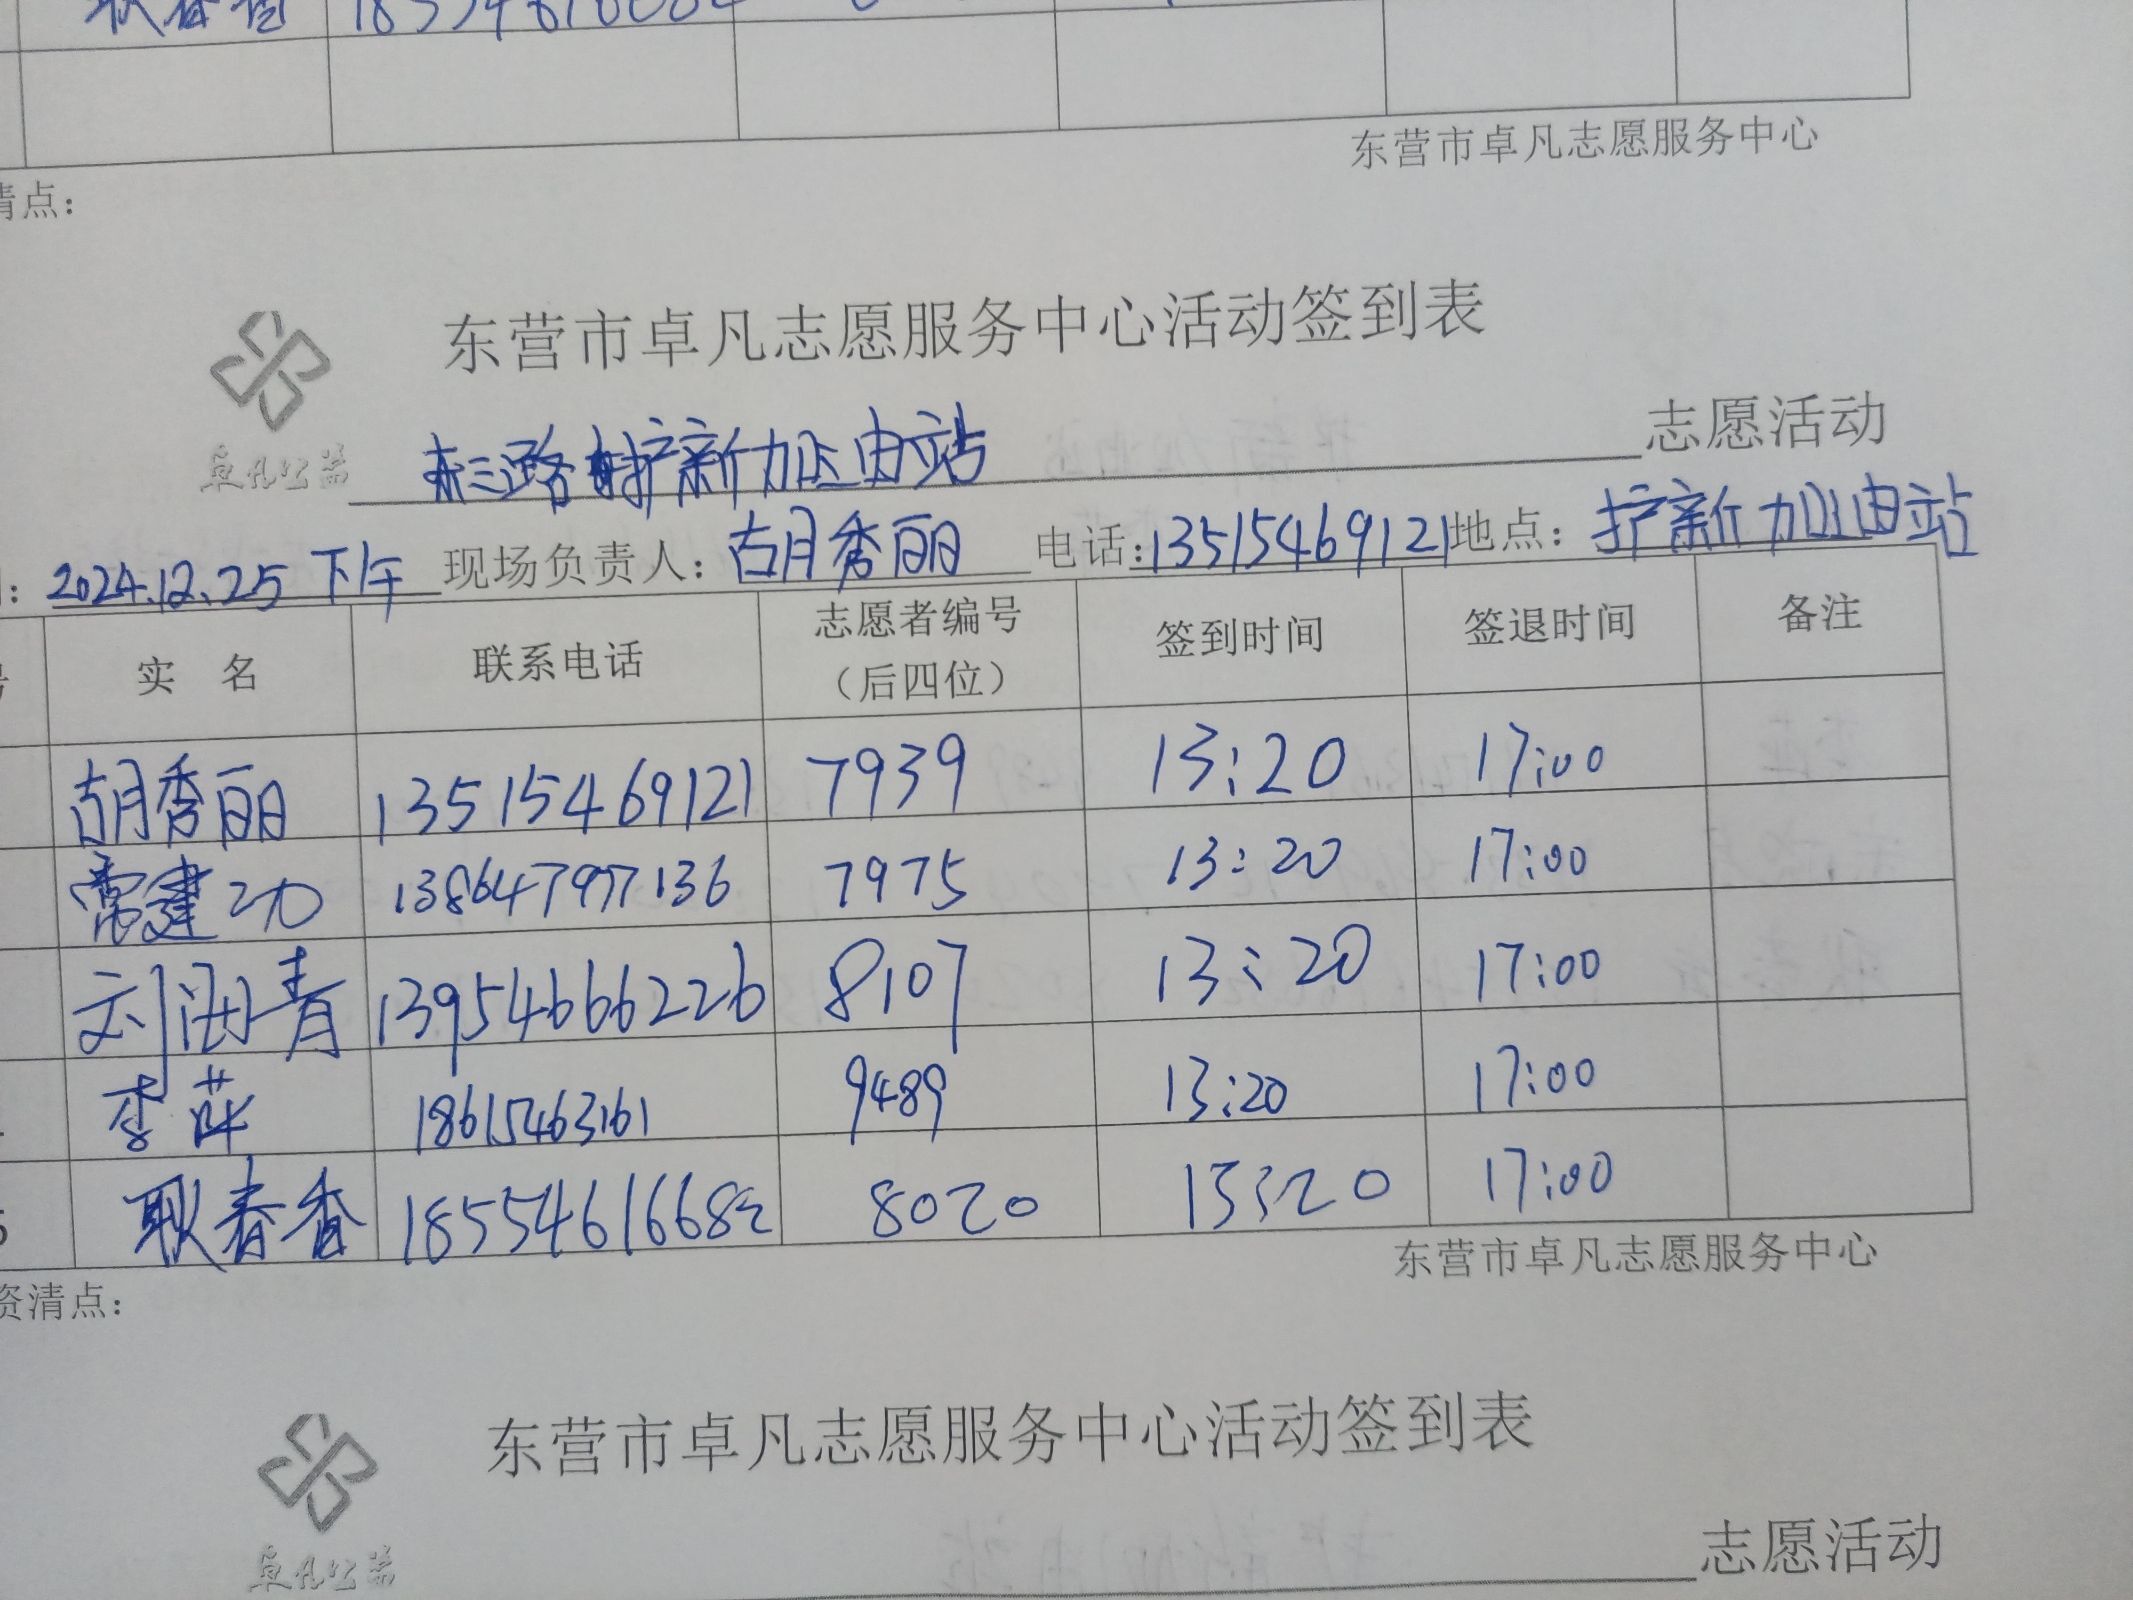 耿春香 18554616682
东营市卓凡志愿服务中心
清点：
东营市卓凡志愿服务中心活动签到表
卓凡公益
东三路 护新加油站 志愿活动
：2024.12.25 下午 现场负责人：胡秀丽 电话：13515469121 地点：护新加油站
号 实 名 联系电话 志愿者编号（后四位） 签到时间 签退时间 备注
胡秀丽 13515469121 7939 13:20 17:00
常建功 13864797136 7975 13:20 17:00
刘润青 13954666226 8107 13:20 17:00
李萍 18615463161 9489 13:20 17:00
5 耿春香 18554616682 8020 13:20 17:00
东营市卓凡志愿服务中心
资清点：
东营市卓凡志愿服务中心活动签到表
卓凡公益
志愿活动